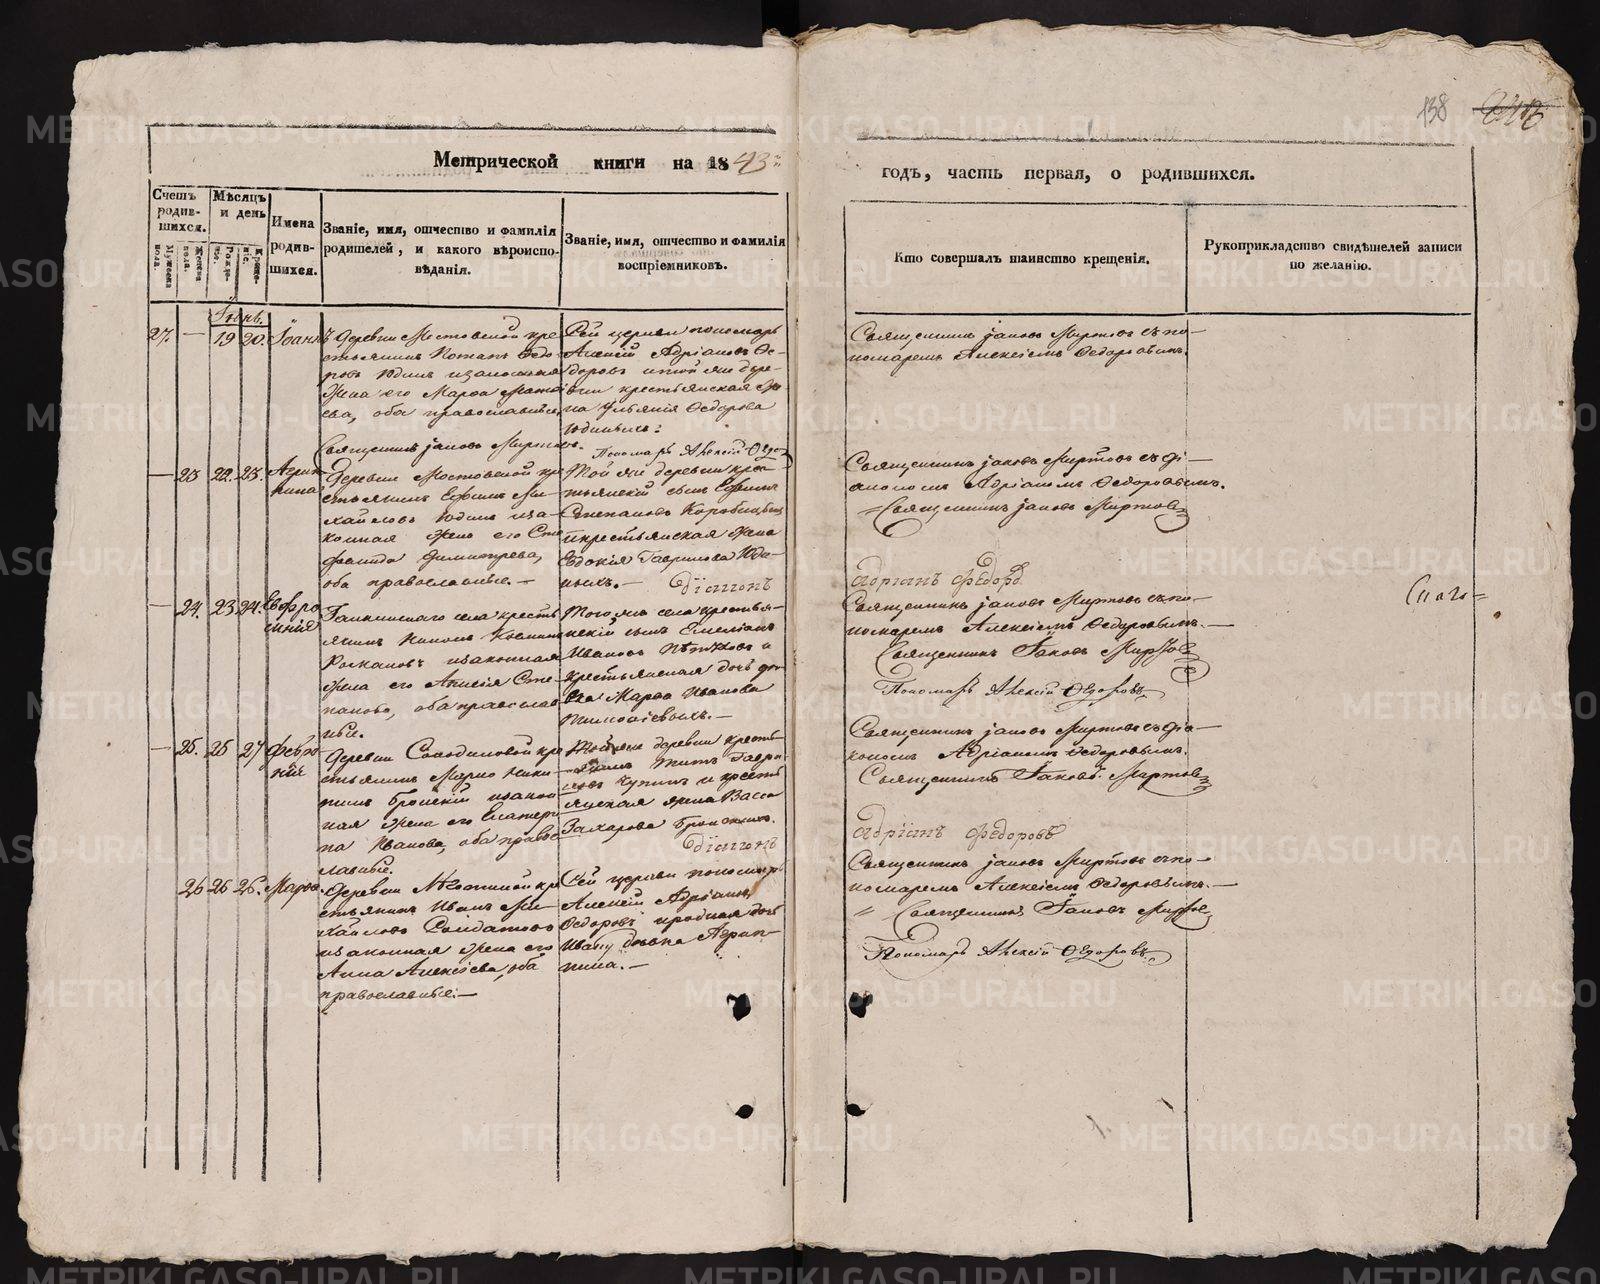 138
Метрической книги на 1843
годъ, часть первая, о родившихся.
Счетъ родив-шихся.
Мужеска пола.
Женска пола.
Мѣсяцъ и день
Рожде-нiе.
Креще-нiе.
Имена родив-шихся.
Званiе, имя, отчество и фамилiя родителей, и какого вѣроиспо-вѣданiя.
Званiе, имя, отчество и фамилiя воспрiемниковъ.
Кто совершалъ таинство крещенiя.
Рукоприкладство свидѣтелей записи по желанiю.
Iюнь.
27. — 19 20. Iоаннъ
Деревни Мостовской кре-
стьянинъ Потапъ Ѳедо-
ровъ Юдинъ изаконная
Жена его Марѳа Матѳе-
ева, оба православные.
Сей церкви пономарь
Алексiй Адрiановъ Ѳе-
доровъ и той же дере-
вни крестьянская же-
на Ѳедорова
Юдиныхъ.
Священникъ Iаковъ Миртовъ.
Пономарь Алексiй Ѳедо
Священникъ Iаковъ Миртовъ съ по-
номаремъ Алексiемъ Ѳедоровымъ.
— 23 22. 23. Агрип-
пина
Деревни Мостовской кре
стьянинъ Ефимъ Ми-
хайловъ Юдинъ иза-
конная жена его Сте
фанида Димитрева,
оба православные. —
Той же деревни крес
тьянскiй сынъ Ефимъ
Степановъ Коробицынъ
и крестьянская жена
Евдокiя Гаврилова Юди-
ныхъ. —
дiаконъ
Священникъ Iаковъ Миртовъ съ дi-
акономъ Адрiаномъ Ѳедоровымъ.
Священникъ Iаковъ Миртовъ
Адрiанъ Федоровъ
— 24. 23. 24. Евфро
синiя
села кресть
янинъ Козмин
изаконная
жена его Сте
панова, оба православ
ные.
Того же села крестья-
нскiй сынъ Емелiанъ
Ивановъ и
крестьянская дочь дѣв
ка Марѳа Иванова
Тимоѳiевыхъ. —
Священникъ Iаковъ Миртовъ съ по-
номаремъ Алексiемъ Ѳедоровымъ. —
Священникъ Iаковъ Миртовъ
Пономарь Алексiй Ѳедоровъ
— 25. 25 27 Февро
нiя
Деревни кре
стьянинъ Марко Ники-
тинъ изакон
ная жена его Екатери
на Иванова, оба правос
лавные.
Той же деревни кресть
янинъ Титъ Гаври-
ловъ Чупинъ и кресть
янская жена Васса
Захарова
дiаконъ
Священникъ Iаковъ Миртовъ съ дiа-
кономъ Адрiаномъ Ѳедоровымъ.
Священникъ Iаковъ Миртовъ
Адрiанъ Федоровъ
26 26 26. Марѳа
Деревни Мостовской кре
стьянинъ Иванъ Ми-
хайловъ Солдатовъ
изаконная жена его
Анна Алексiева, оба
православные. —
Сей церкви пономарь
Алексiй Адрiановъ
Ѳедоровъ и родная дочь
Ивану дѣвка Агрип-
пина. —
Священникъ Iаковъ Миртовъ съ по-
номаремъ Алексiемъ Ѳедоровымъ. —
Священникъ Iаковъ Миртовъ
Пономарь Алексiй Ѳедоровъ
METRIKI.GASO-URAL.RU